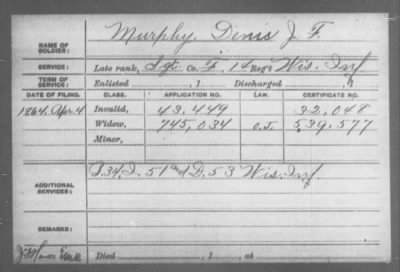 NAME OF SOLDIER: Murphy, Denis J. F.
SERVICE: Late rank, Sgt Co. F, 14 Reg't Wis. Inf
TERM OF SERVICE: Enlisted , 1 Discharged , 1
DATE OF FILING. CLASS. APPLICATION NO. LAW. CERTIFICATE NO.
1864. Apr. 4 Invalid, 43.449 32.048
Widow, 745,034 O.L. 539.577
Minor,
ADDITIONAL SERVICES: D. 51 and D. 53 Wis. Inf
REMARKS:
Died , 1 , at